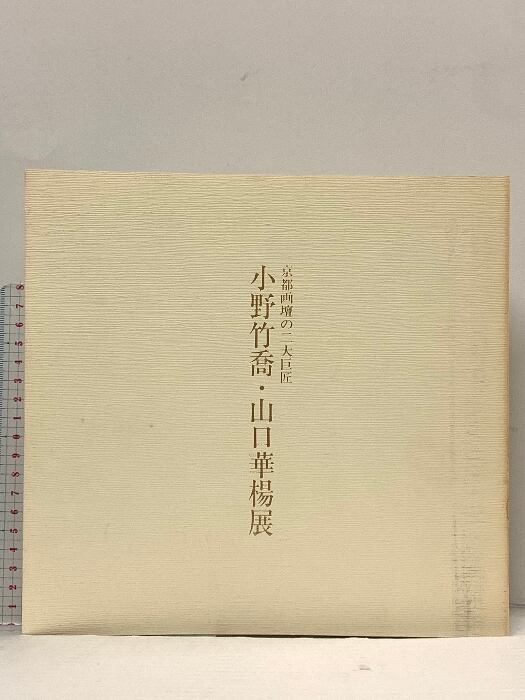 京都画壇の二大巨匠
小野竹喬・山口華楊展
1 2 3 4 5 6 7 8 9 0 1 2 3 4 5 6 7 8